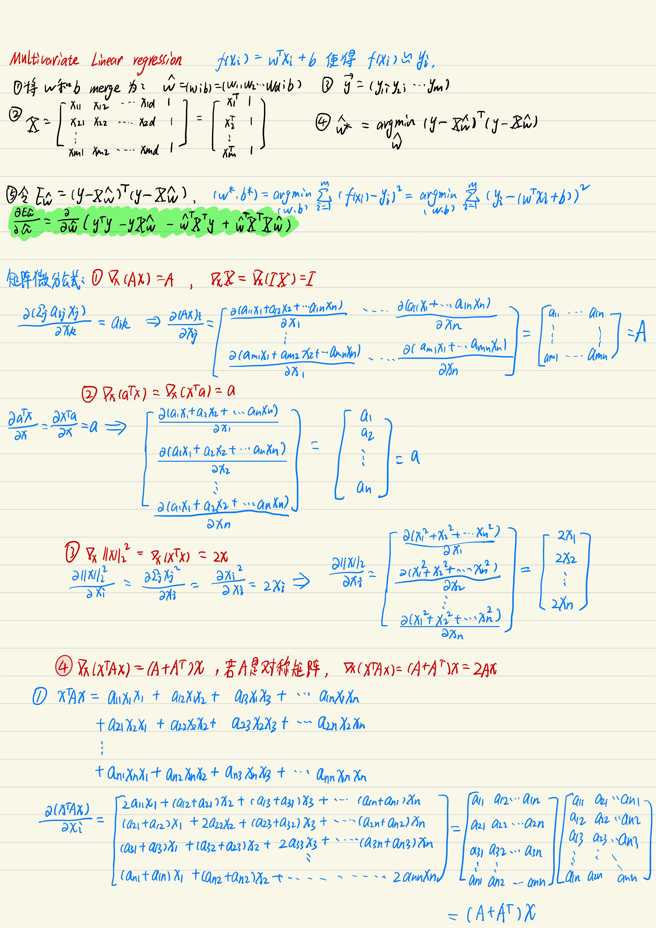 Multivariate Linear regression f(xᵢ) = wᵀxᵢ + b 使得 f(xᵢ) ≃ yᵢ.
①将 w和b merge 为: ŵ = (w;b) = (w₁,w₂...w_d;b) ③ y⃗ = (y₁;y₂;...yₘ)
② X = [x₁₁ x₁₂ ... x₁d 1
x₂₁ x₂₂ ... x₂d 1
⋮
xₘ₁ xₘ₂ ... xₘd 1] = [x₁ᵀ 1
x₂ᵀ 1
⋮
xₘᵀ 1]
④ ŵ* = argmin_ŵ (y-Xŵ)ᵀ(y-Xŵ)
⑤令 E_ŵ = (y-Xŵ)ᵀ(y-Xŵ), (w*,b*) = argmin_(w,b) Σᵢ₌₁ᵐ (f(xᵢ)-yᵢ)² = argmin_(w,b) Σᵢ₌₁ᵐ (yᵢ-(wᵀxᵢ+b))²
∂E_ŵ/∂ŵ = ∂/∂ŵ (yᵀy - yXŵ - ŵᵀXᵀy + ŵᵀXᵀXŵ)
矩阵微分公式: ① ∇ₓ(Ax) = A , ∇ₓX = ∇ₓ(IX) = I
∂(Σⱼ aᵢⱼxⱼ)/∂xₖ = aᵢₖ ⇒ ∂(Ax)ᵢ/∂xⱼ = [∂(a₁₁x₁+a₁₂x₂+...a₁ₙxₙ)/∂x₁ ... ∂(a₁₁x₁+...a₁ₙxₙ)/∂xₙ
⋮
∂(aₘ₁x₁+aₘ₂x₂+...aₘₙxₙ)/∂x₁ ... ∂(aₘ₁x₁+...aₘₙxₙ)/∂xₙ] = [a₁₁ ... a₁ₙ
⋮ ⋮
aₘ₁ ... aₘₙ] = A
② ∇ₓ(aᵀx) = ∇ₓ(xᵀa) = a
∂aᵀx/∂x = ∂xᵀa/∂x = a ⇒ [∂(a₁x₁+a₂x₂+...aₙxₙ)/∂x₁
∂(a₁x₁+a₂x₂+...aₙxₙ)/∂x₂
⋮
∂(a₁x₁+a₂x₂+...aₙxₙ)/∂xₙ] = [a₁
a₂
⋮
aₙ] = a
③ ∇ₓ||x||₂² = ∇ₓ(xᵀx) = 2x
∂||x||₂²/∂xᵢ = ∂Σⱼxⱼ²/∂xᵢ = ∂xᵢ²/∂xᵢ = 2xᵢ ⇒ ∂||x||₂/∂xᵢ = [∂(x₁²+x₂²+...xₙ²)/∂x₁
∂(x₁²+x₂²+...xₙ²)/∂x₂
⋮
∂(x₁²+x₂²+...xₙ²)/∂xₙ] = [2x₁
2x₂
⋮
2xₙ]
④ ∇ₓ(xᵀAx) = (A+Aᵀ)x , 若A是对称矩阵, ∇ₓ(xᵀAx) = (A+Aᵀ)x = 2Ax
① xᵀAx = a₁₁x₁x₁ + a₁₂x₁x₂ + a₁₃x₁x₃ + ... a₁ₙx₁xₙ
+ a₂₁x₂x₁ + a₂₂x₂x₂ + a₂₃x₂x₃ + ... a₂ₙx₂xₙ
⋮
+ aₙ₁xₙx₁ + aₙ₂xₙx₂ + aₙ₃xₙx₃ + ... aₙₙxₙxₙ
∂(xᵀAx)/∂xᵢ = [2a₁₁x₁ + (a₁₂+a₂₁)x₂ + (a₁₃+a₃₁)x₃ + ... (a₁ₙ+aₙ₁)xₙ
(a₂₁+a₁₂)x₁ + 2a₂₂x₂ + (a₂₃+a₃₂)x₃ + ... (a₂ₙ+aₙ₂)xₙ
(a₃₁+a₁₃)x₁ + (a₃₂+a₂₃)x₂ + 2a₃₃x₃ + ... (a₃ₙ+aₙ₃)xₙ
⋮
(aₙ₁+a₁ₙ)x₁ + (aₙ₂+aₙ₂)x₂ + ... 2aₙₙxₙ] = [a₁₁ a₁₂ ... a₁ₙ
a₂₁ a₂₂ ... a₂ₙ
a₃₁ a₃₂ ... a₃ₙ
⋮
aₙ₁ aₙ₂ ... aₙₙ] [a₁₁ a₂₁ ... aₙ₁
a₁₂ a₂₂ ... aₙ₂
a₁₃ a₂₃ ... aₙ₃
⋮
a₁ₙ a₂ₙ ... aₙₙ]
= (A+Aᵀ)x